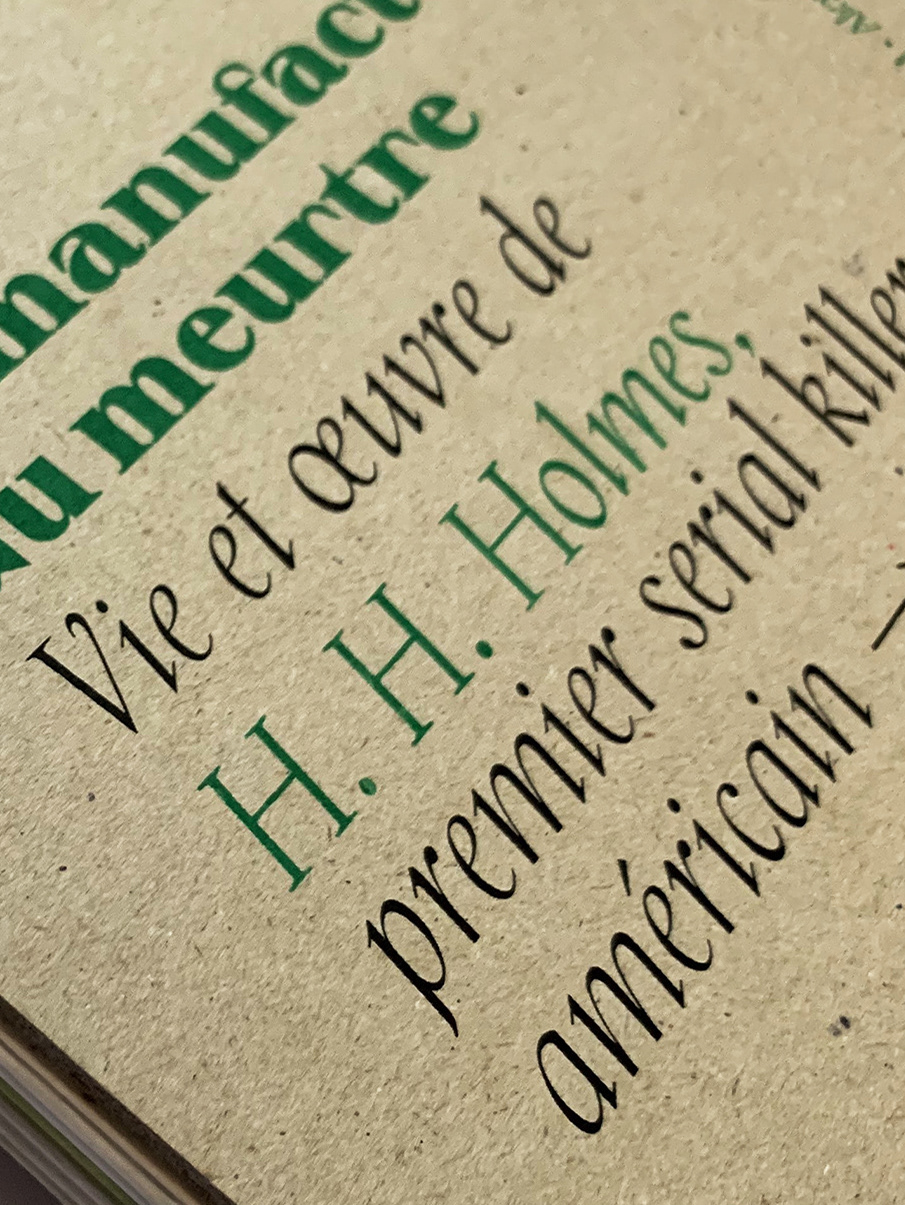 manufact
u meurtre
Vie et œuvre de
H. H. Holmes,
premier serial killer
américain —